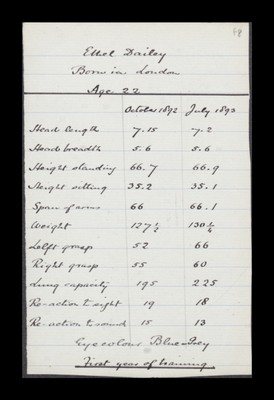 F8
Ethel Dailey
Born in London
Age 22
October 1892 July 1893
Head length 7.15 7.2
Head breadth 5.6 5.6
Height standing 66.7 66.9
Height sitting 35.2 35.1
Span of arms 66 66.1
Weight 127½ 130¼
Left grasp 52 66
Right grasp 55 60
Lung capacity 195 225
Re-action to sight 19 18
Re-action to sound 15 13
Eye colour Blue-Grey
First year of training